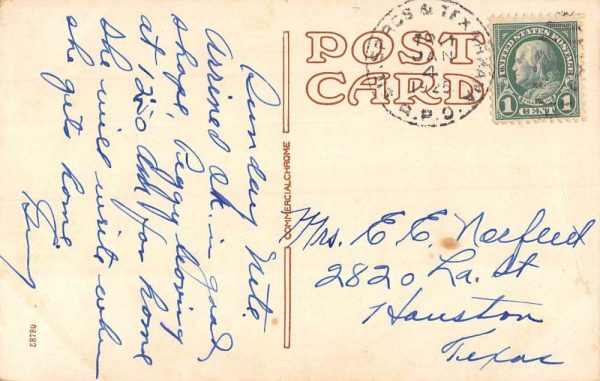 POST
CARD
UNITED STATES POSTAGE
1 CENT 1
JAN
4
R.P.O.
COMMERCIALCHROME
Sunday Nite
Arrived Ok. in good
shape, Peggy leaving
at 1250 for home
she will write when
she gets home
Mrs. E. E.
2820 La. St
Houston
Texas
58780